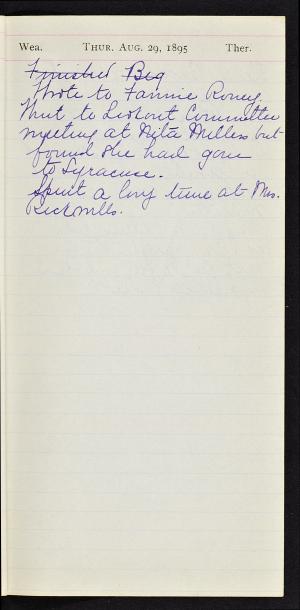 Wea. THUR. AUG. 29, 1895 Ther.
Finished Beg
Wrote to Fannie Roney
Went to Lookout Committee
meeting at Nita Millers but
found she had gone
to Syracuse.
Spent a long time at Mrs.